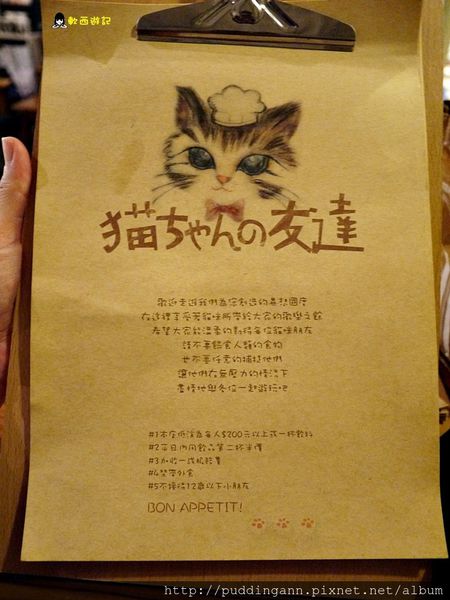 軟西遊記
猫ちゃんの友達
歡迎走進我們為您創造的喜想國度
在這裡享受著貓咪所帶給大家的歡樂之餘
希望大家能溫柔的對待每位貓咪朋友
請不要餵食人類的食物
也不要任意的捕捉他們
讓他們在無壓力的情況下
盡情地與各位一起遊玩吧
#1本店低消為每人$200元以上或一杯飲料
#2平日內用飲品第二杯半價
#3加收一成服務費
#4禁帶外食
#5不接待12歲以下小朋友
BON APPETIT!
http://puddingann.pixnet.net/album